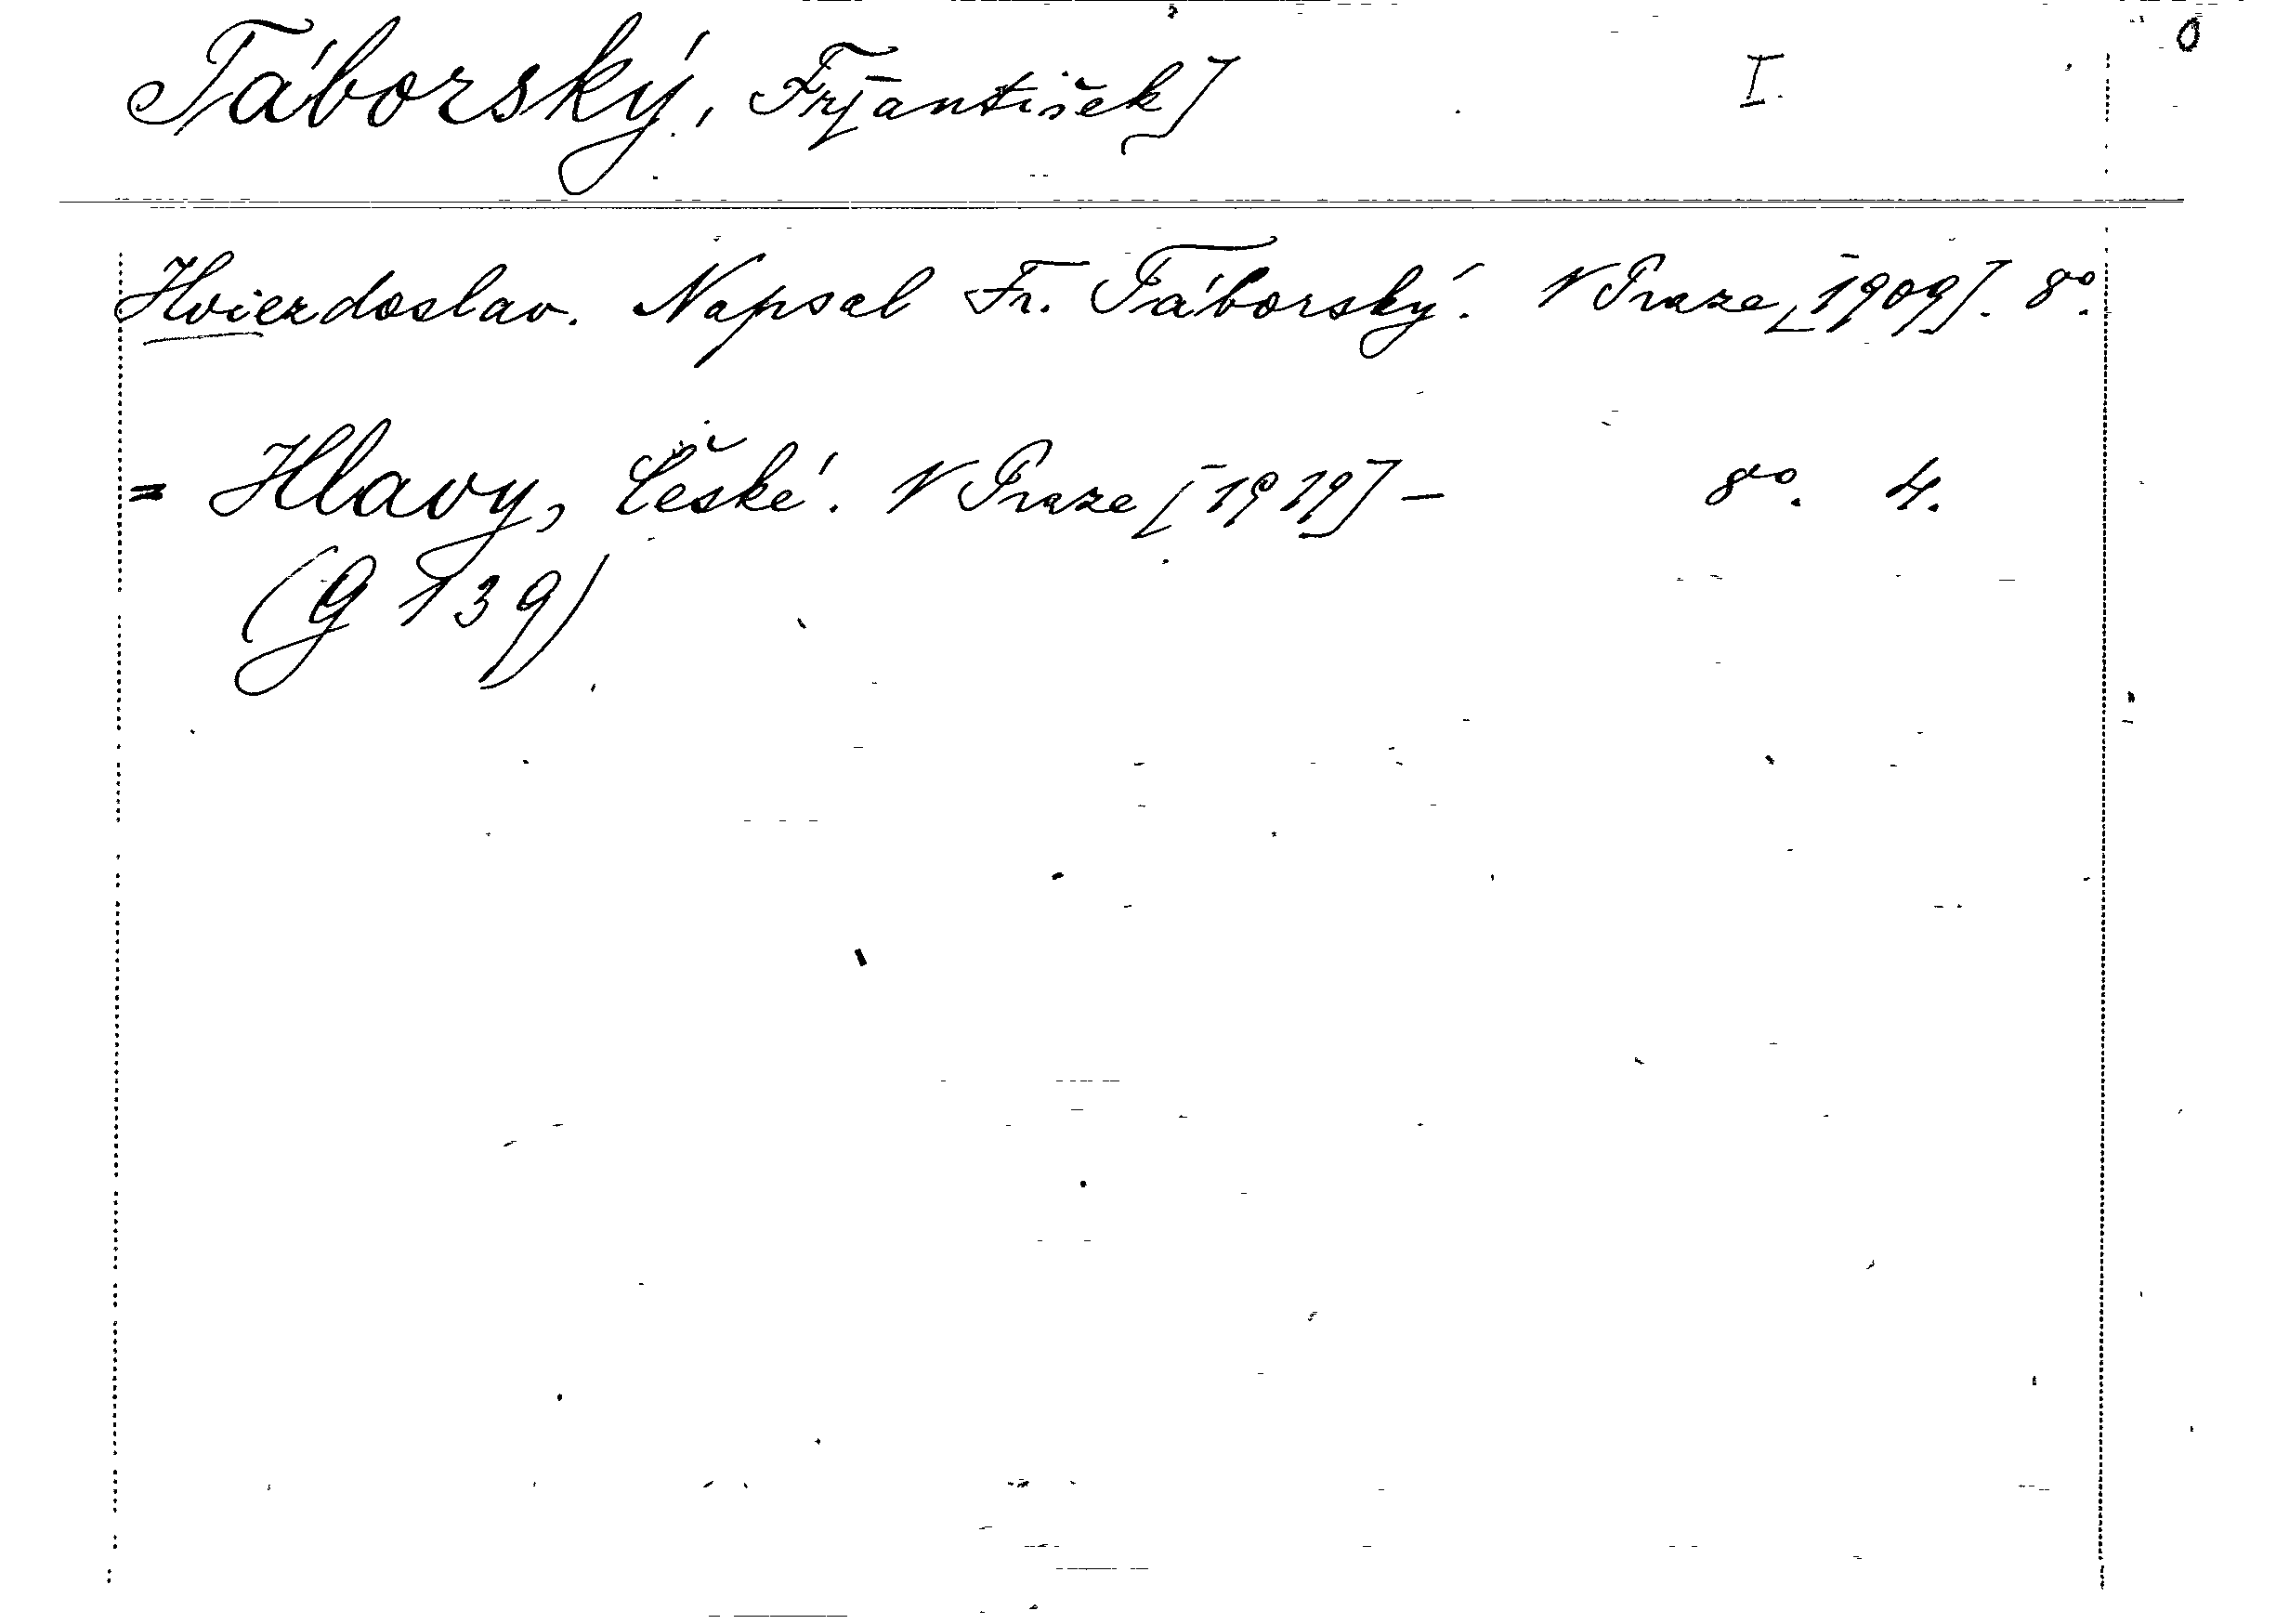 Táborský, Fr[antišek] I.
Hviezdoslav. Napsal Fr. Táborský. V Praze [1909]. 8º.
= Hlavy, České. V Praze [1919] – 8º. 4.
(G 139)